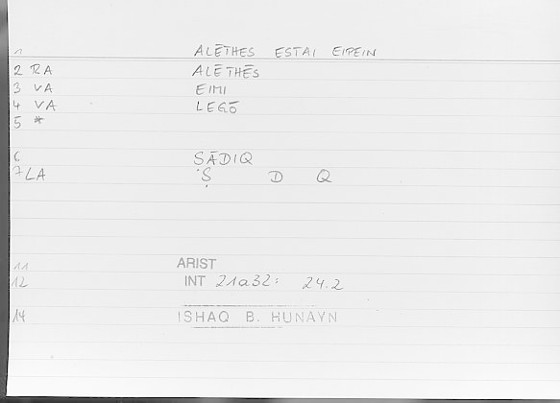 1 ALĒTHES ESTAI EIPEIN
2 RA ALĒTHĒS
3 VA EIMI
4 VA LEGŌ
5 *
6 ṢĀDIQ
7 LA Ṣ D Q
11 ARIST
12 INT 21a32: 24.2
14 ISHAQ B. HUNAYN